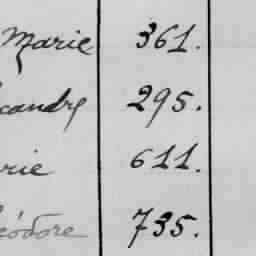 Marie 361.
candre 295.
rie 611.
éodore 735.